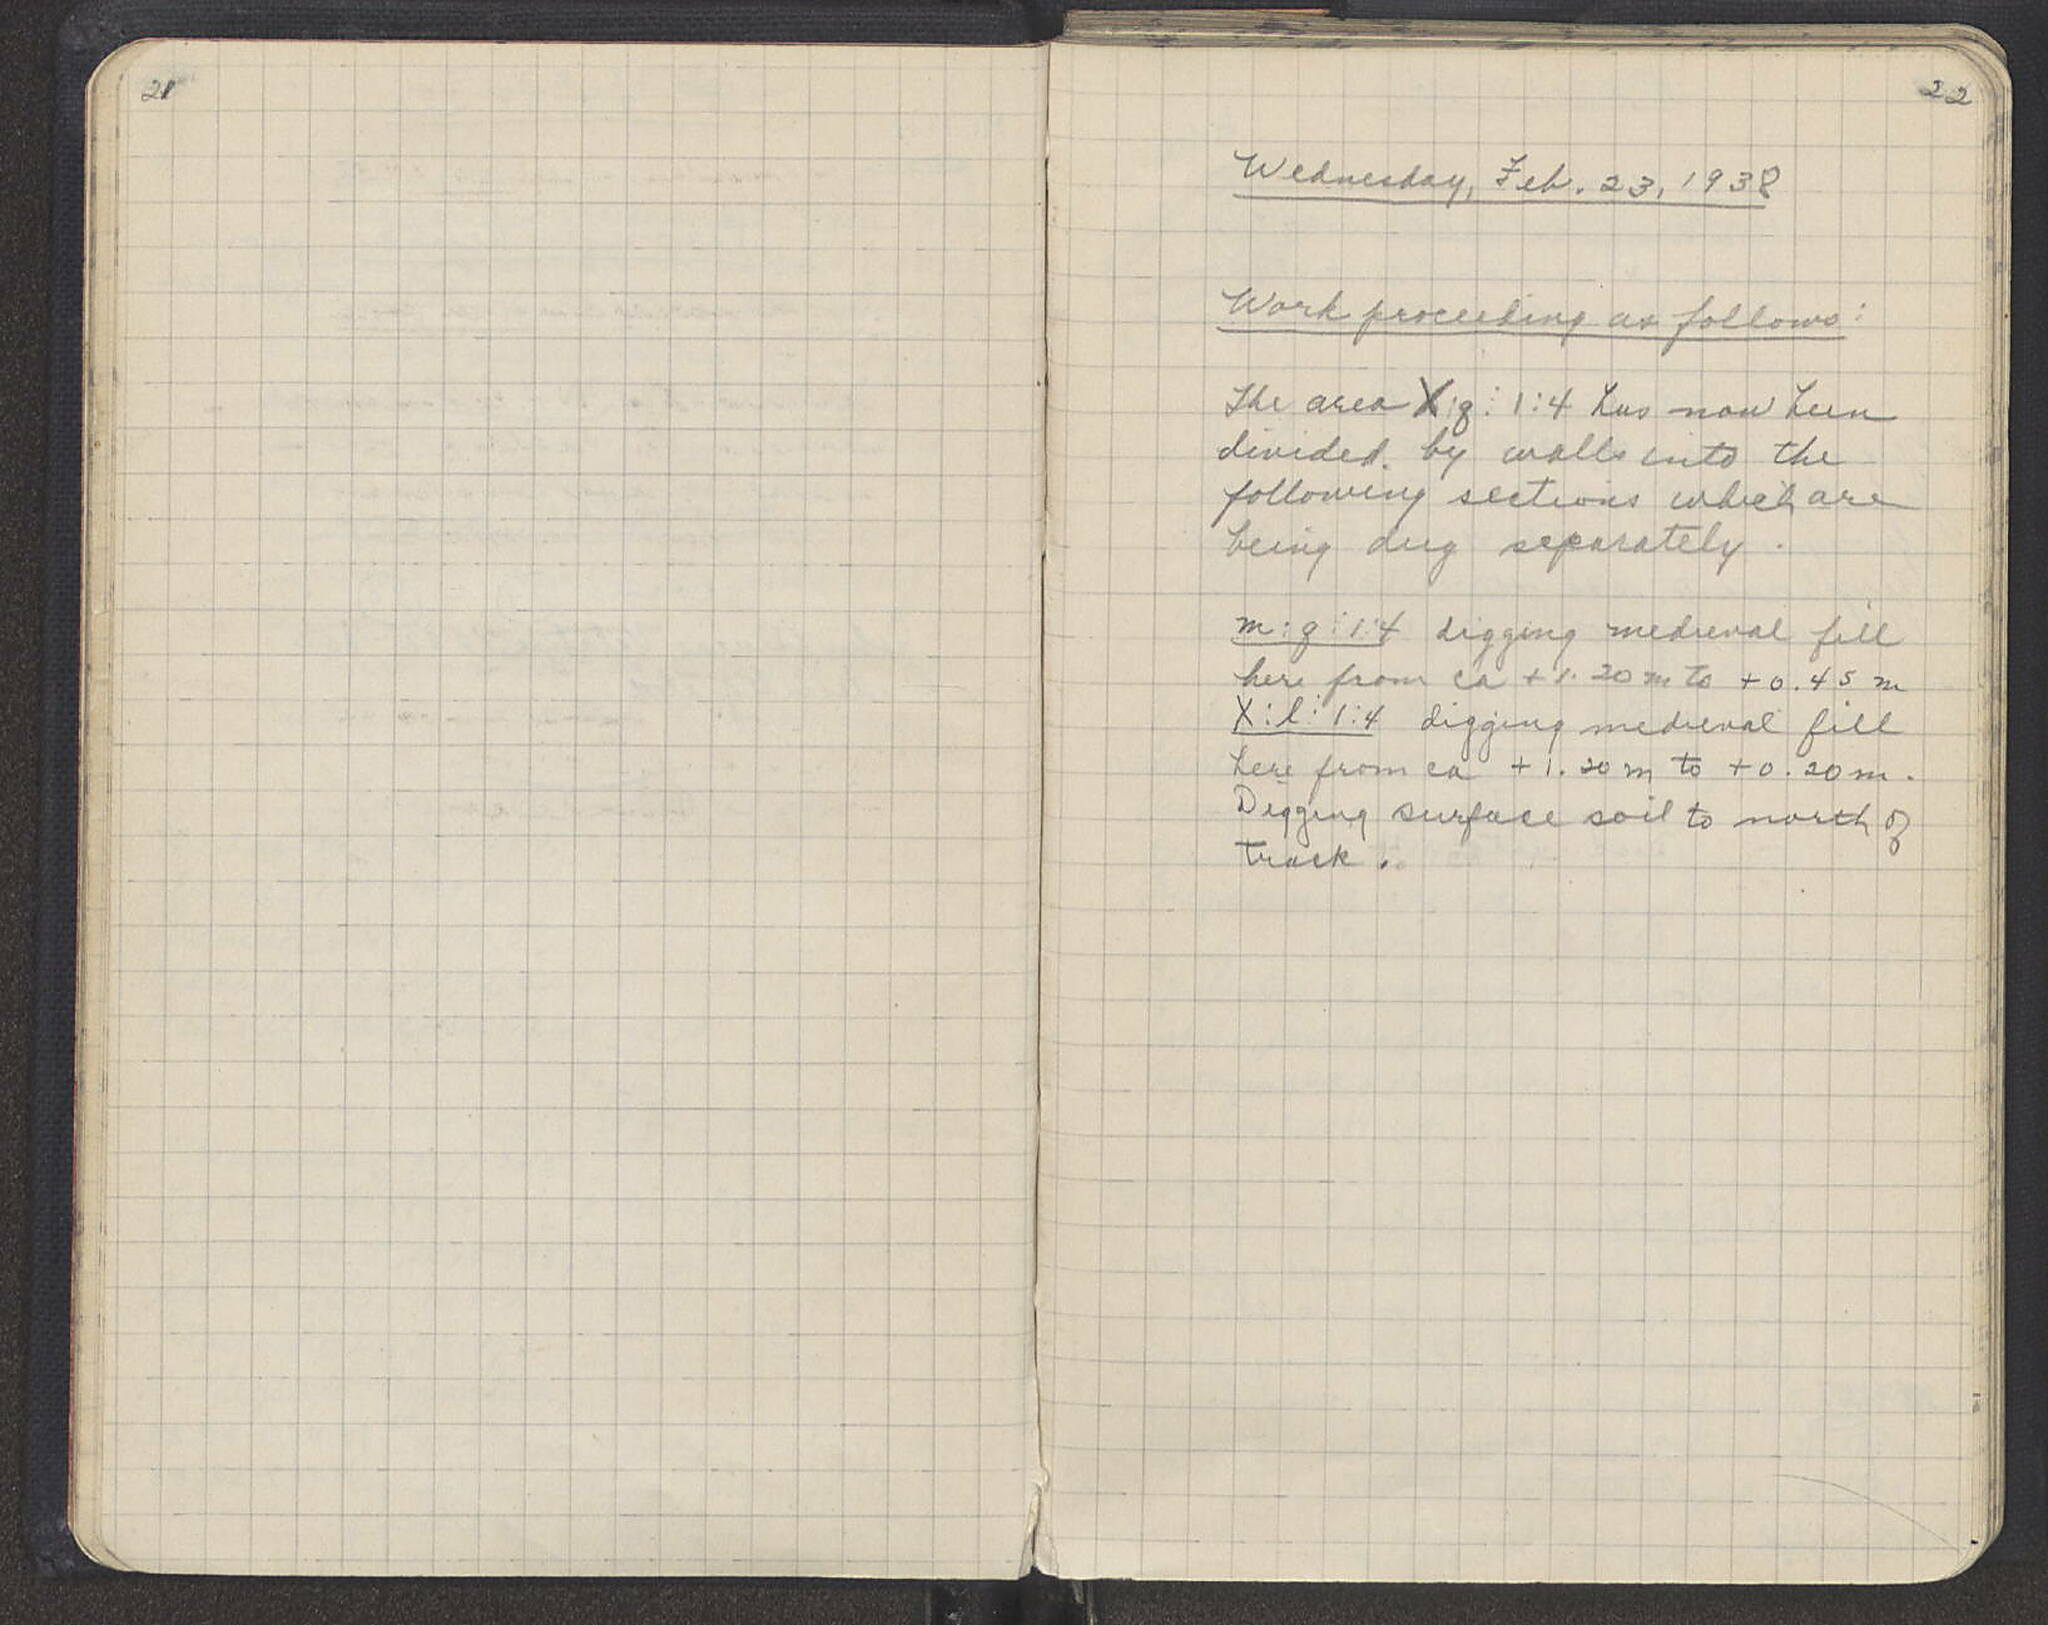 21
22
Wednesday, Feb. 23, 1938
Work proceeding as follows:
The area X:q:1:4 has now been
divided by walls into the
following sections which are
being dug separately.
m:q:1:4 digging medieval fill
here from ca +1.20 m to +0.45 m
X:l:1:4 digging medieval fill
here from ca +1.20 m to +0.20 m.
Digging surface soil to north of
track.